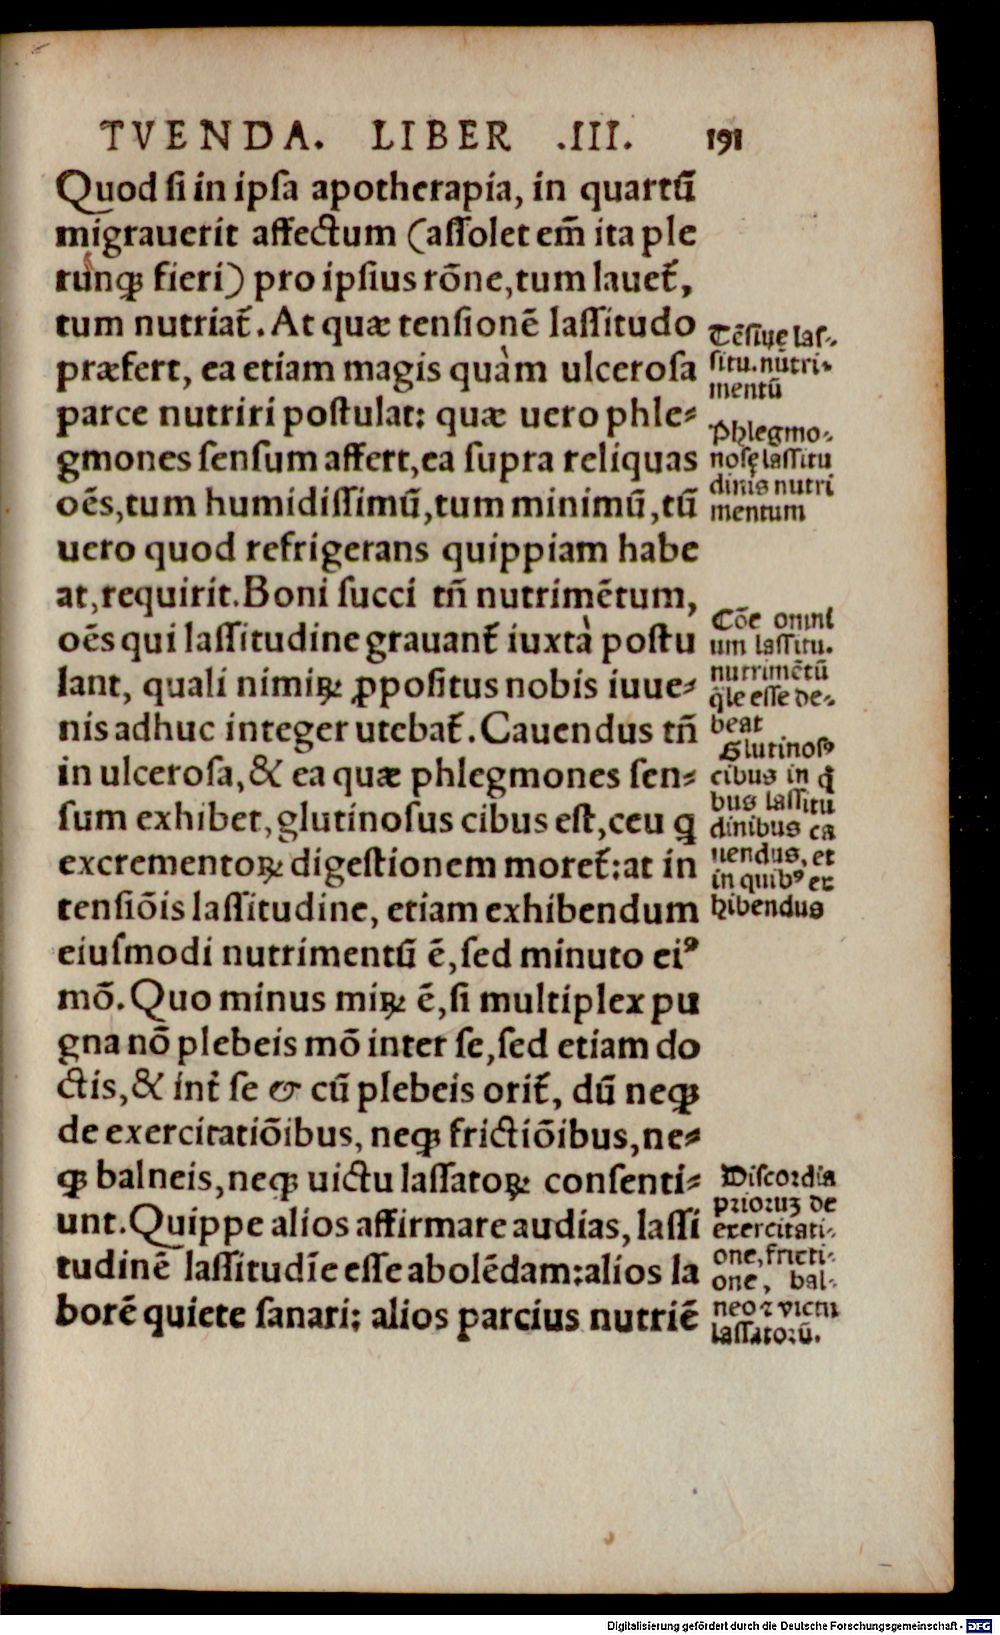 TVENDA. LIBER .III. 191
Quod ſi in ipſa apotherapia, in quartū
migrauerit affectum (aſſolet em̄ ita ple
runq; fieri) pro ipſius rōne, tum lauet᷑,
tum nutriat᷑. At quæ tenſionē laſſitudo
præfert, ea etiam magis quàm ulceroſa
parce nutriri poſtulat: quæ uero phle⸗
gmones ſenſum affert, ea ſupra reliquas
oēs, tum humidiſſimū, tum minimū, tū
uero quod refrigerans quippiam habe
at, requirit. Boni ſucci tn̄ nutrimētum,
oēs qui laſſitudine grauant᷑ iuxtà poſtu
lant, quali nimiꝝ ꝓpoſitus nobis iuue⸗
nis adhuc integer utebat᷑. Cauendus tn̄
in ulceroſa, & ea quæ phlegmones ſen⸗
ſum exhibet, glutinoſus cibus eſt, ceu q
excrementoꝝ digeſtionem moret᷑: at in
tenſiōis laſſitudine, etiam exhibendum
eiuſmodi nutrimentū ē, ſed minuto eiꝰ
mō. Quo minus miꝝ ē, ſi multiplex pu
gna nō plebeis mō inter ſe, ſed etiam do
ctis, & int᷑ ſe & cū plebeis orit᷑, dū neq;
de exercitatiōibus, neq; frictiōibus, ne⸗
q; balneis, neq; uictu laſſatoꝝ conſenti⸗
unt. Quippe alios affirmare audias, laſſi
tudinē laſſitudīe eſſe abolēdam: alios la
borē quiete ſanari: alios parcius nutriē
Tēſiuę laſ⸗
ſitu. nutri⸗
mentū
Phlegmo⸗
noſę laſſitu
dinis nutri
mentum
Cōe omni
um laſſitu.
nutrimētū
q̄le eſſe de⸗
beat
Glutinoſꝰ
cibus in q̄
bus laſſitu
dinibus ca
uendus, et
in quibꝰ ex
hibendus
Diſcordia
prioruꝫ de
exercitati⸗
one, fricti⸗
one, bal⸗
neo ⁊ victu
laſſatorū.
Digitalisierung gefördert durch die Deutsche Forschungsgemeinschaft - DFG